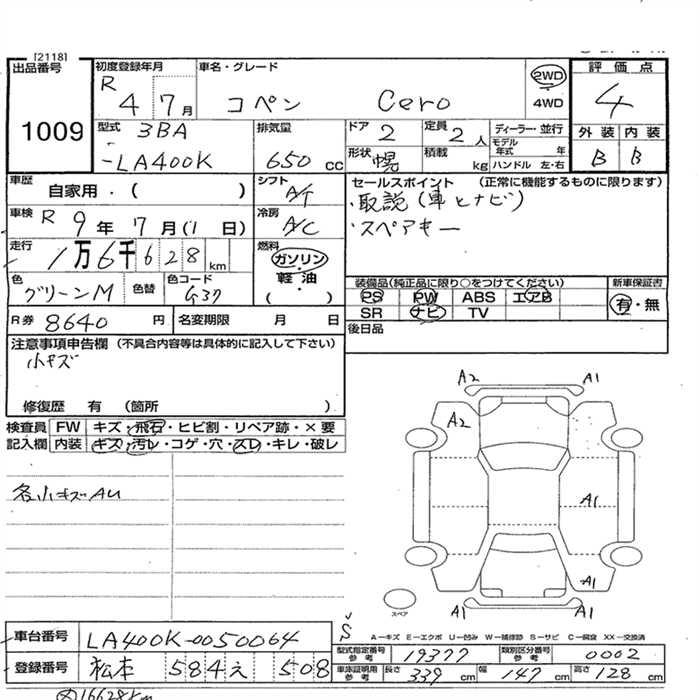 [2118]
出品番号
1009
初度登録年月
R 4 7月
車名・グレード
コペン Cero
2WD
4WD
評価点
4
外装 内装
B B
型式 3BA
-LA400K
排気量
650 cc
ドア 2
定員 2 人
形状 幌
積載 kg
ディーラー・並行
モデル年式 年
ハンドル 左・右
車歴
自家用・( )
シフト A/T
車検 R 9年 7月(1日)
冷房 A/C
走行
1万6千628km
燃料
ガソリン
・
軽油
( )
色
グリーンM
色替
色コード
G37
セールスポイント (正常に機能するものに限ります)
・取説(車とナビ)
・スペアキー
装備品(純正品に限り○をつけてください)
PS PW ABS エアB
SR ナビ TV
新車保証書
有・無
後日品
R券 8640 円
名変期限 月 日
注意事項申告欄 (不具合内容等は具体的に記入して下さい)
小キズ
修復歴 有 (箇所 )
検査員 FW キズ・飛石・ヒビ割・リペア跡・×要
記入欄 内装 キズ・汚レ・コゲ・穴・スレ・キレ・破レ
各小キズAU
A2 A1
A2
A1
A1
A1 A1
スペア
A−キズ E−エクボ U−凹み W−補修跡 S−サビ C−腐食 XX−交換済
車台番号 LA400K-0050064
登録番号 松本 584 え 508
型式指定番号 参考 19377
類別区分番号 参考 0002
車体証明用 参考 長さ 339 cm 幅 147 cm 高さ 128 cm
16628km